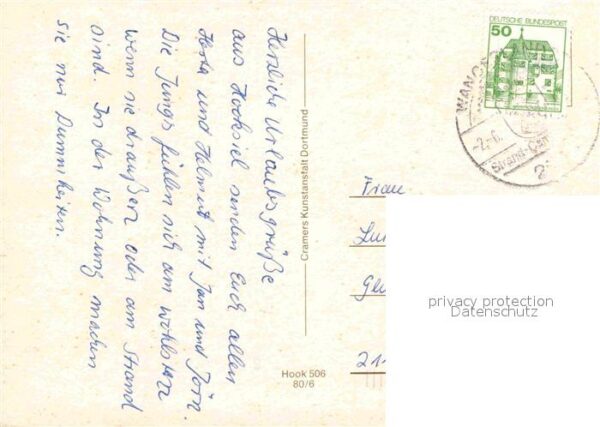 Herzliche Urlaubsgrüße
aus Hooksiel senden Euch allen
Herta und Helmut mit Jan und Jörn.
Die Jungs fühlen sich am wohlsten
wenn sie draußen oder am Strand
sind. In der Wohnung machen
sie nur Dummheiten.
Cramers Kunstanstalt Dortmund
Hook 506
80/6
50
DEUTSCHE BUNDESPOST
WANG
-2.-6.
Strand-Cam
Frau
privacy protection
Datenschutz
21